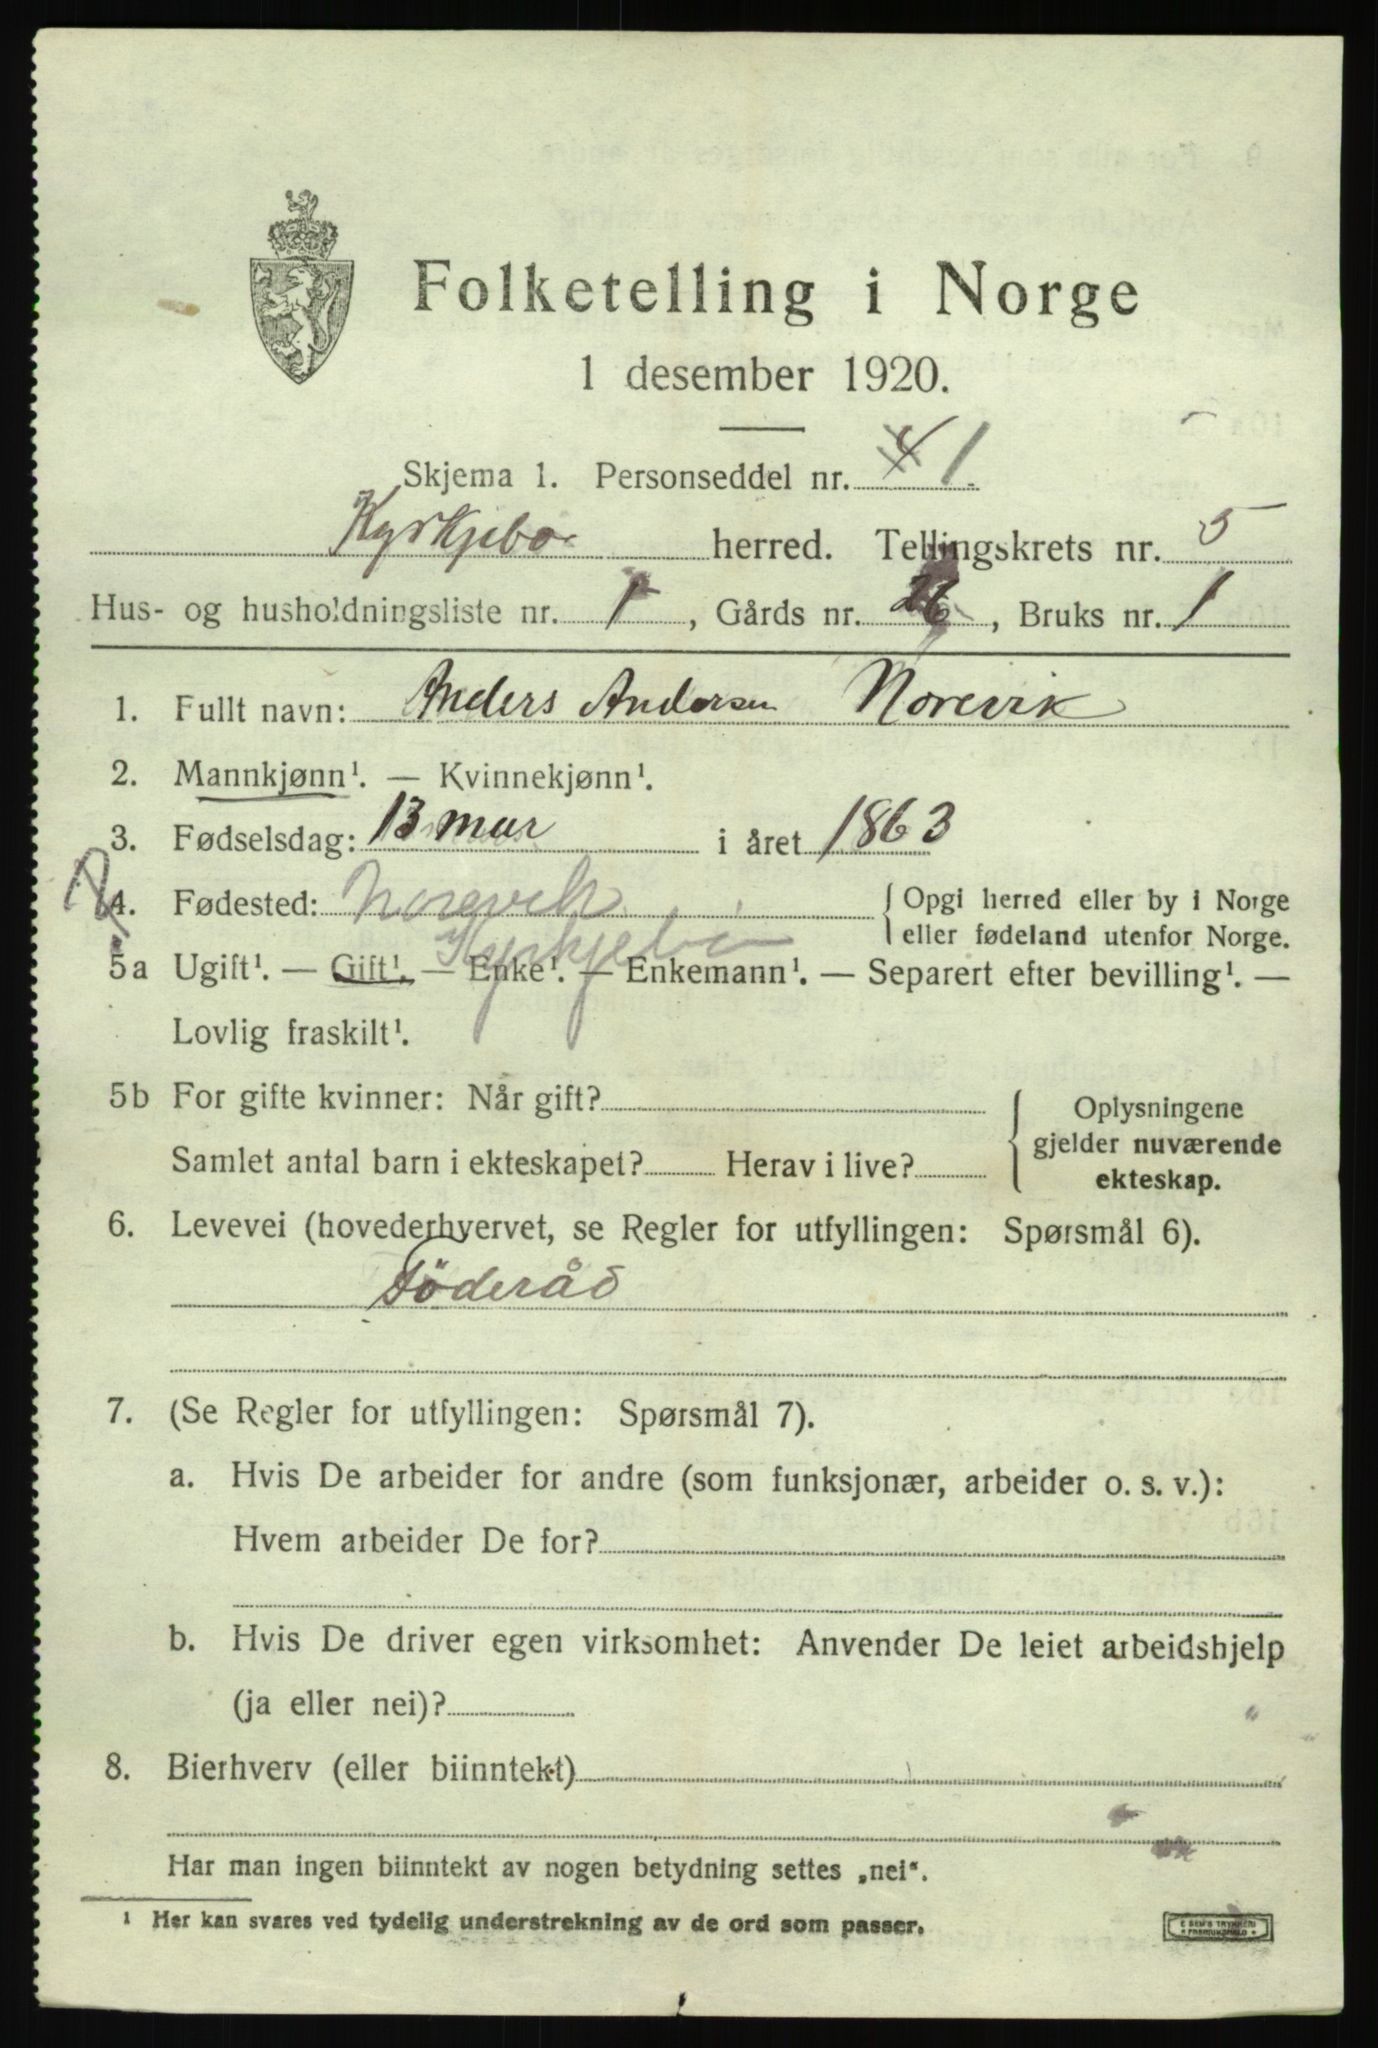 Folketelling i Norge
1 desember 1920.
Skjema 1. Personseddel nr. 1.
Kyrkjebø herred. Tellingskrets nr. 5
Hus- og husholdningsliste nr. 1, Gårds nr. 26, Bruks nr. 1
1. Fullt navn: Anders Andersen Norevik
2. Mannkjønn¹. — Kvinnekjønn¹.
3. Fødselsdag: 13 mar i året 1863
4. Fødested: Norevik { Opgi herred eller by i Norge
Kyrkjebø eller fødeland utenfor Norge.
5a Ugift¹. — Gift¹. — Enke¹. — Enkemann¹. — Separert efter bevilling¹. —
Lovlig fraskilt¹.
5b For gifte kvinner: Når gift? { Oplysningene
gjelder nuværende
Samlet antal barn i ekteskapet? Herav i live?
ekteskap.
6. Levevei (hovederhvervet, se Regler for utfyllingen: Spørsmål 6).
Föderåd
7. (Se Regler for utfyllingen: Spørsmål 7).
a. Hvis De arbeider for andre (som funksjonær, arbeider o. s. v.):
Hvem arbeider De for?
b. Hvis De driver egen virksomhet: Anvender De leiet arbeidshjelp
(ja eller nei)?
8. Bierhverv (eller biinntekt)
Har man ingen biinntekt av nogen betydning settes „nei“.
¹ Her kan svares ved tydelig understrekning av de ord som passer.